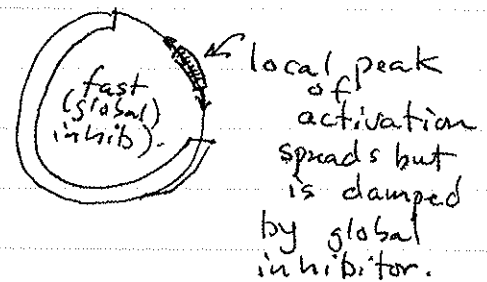 fast
(global)
inhib).
local peak
of
activation
spreads but
is damped
by global
inhibitor.